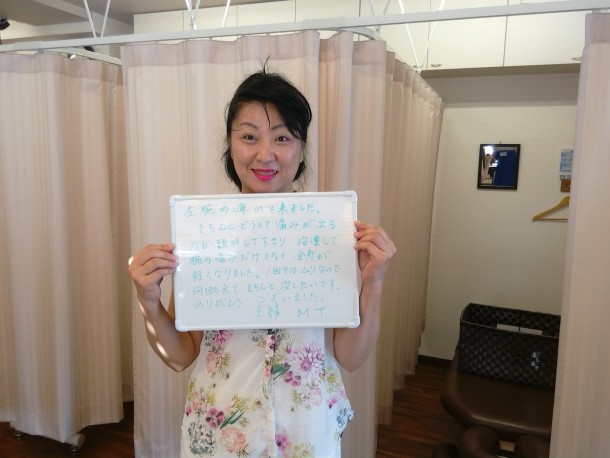 左腕の痛みで来ました。
きちんとどうして痛みが出る
のか説明して下さり 治療して
腕の痛みだけでなく 全身が
軽くなりました。1回ではムリなので
何回か来て きちんと治したいです。
ありがとう ございました。
主婦 M T